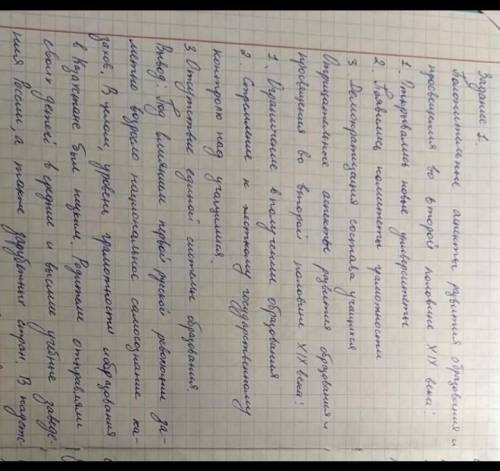 Задание 1.
Положительные аспекты развития образования и
просвещения во второй половине XIX века:
1. Открывались новые университеты
2. Появились комитеты грамотности
3. Демократизация состава учащихся
Отрицательные аспекты развития образования и
просвещения во второй половине XIX века:
1. Ограничение в получении образования
2. Стремление к жесткому государственному
контролю над учащимися.
3. Отсутствие единой системы образования.
Вывод: Под влиянием первой русской революции за-
метно возросло национальное самосознание ка-
захов. В целом, уровень грамотности образования
в Казахстане был низким. Родители отправляли
своих детей в средние и высшие учебные заведе-
ния России, а также зарубежных стран. В